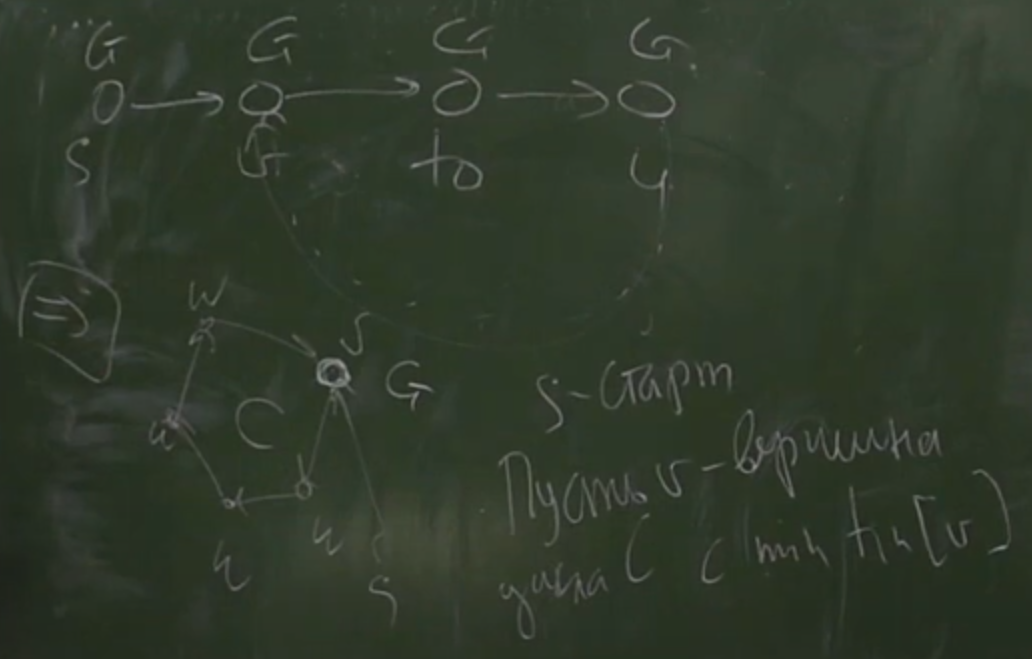 G G G G
S v to u
⇒
W
v
G
u
C
S
s - старт
Пусть v - вершина
цикла C с min tin[v]